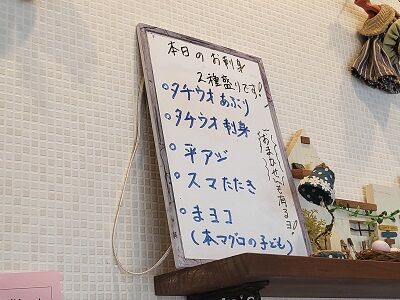 本日のお刺身
2種盛りです!
○タチウオあぶり
○タチウオ刺身
○平アジ
○スマたたき
○まヨコ
(本マグロの子ども)
おまかせも有るヨ!